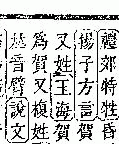 禮郊特牲昏
揚子方言賀
又姓玉海賀
爲賀又複姓
音臂說文